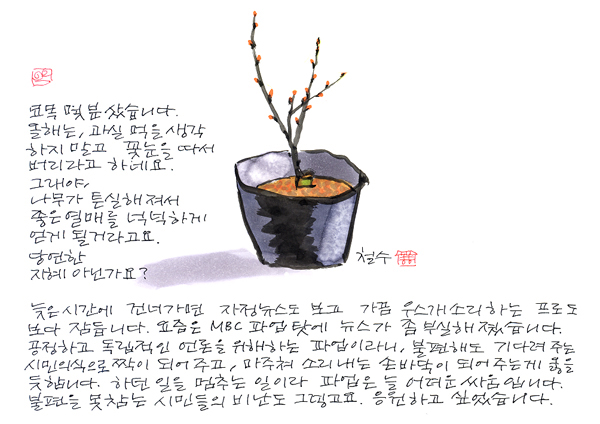 묘목 몇 분 샀습니다.
올해는, 과실 먹을 생각
하지 말고 꽃눈을 따서
버리라고 하네요.
그래야,
나무가 튼실해져서
좋은 열매를 넉넉하게
얻게 될거라고요.
당연한
지혜 아닌가요?
철수
늦은 시간에 건너가면 자정뉴스도 보고 가끔 우스개소리하는 프로도
보다 잠듭니다. 요즘은 MBC 파업 탓에 뉴스가 좀 부실해졌습니다.
공정하고 독립적인 언론을 위해하는 파업이라니, 불편해도 기다려주는
시민의식으로 짝이 되어주고, 마주쳐 소리내는 손바닥이 되어주는게 옳을
듯합니다. 하던 일을 멈추는 일이라 파업은 늘 어려운 싸움입니다.
불편을 못참는 시민들의 비난도 그렇고요. 응원하고 싶었습니다.